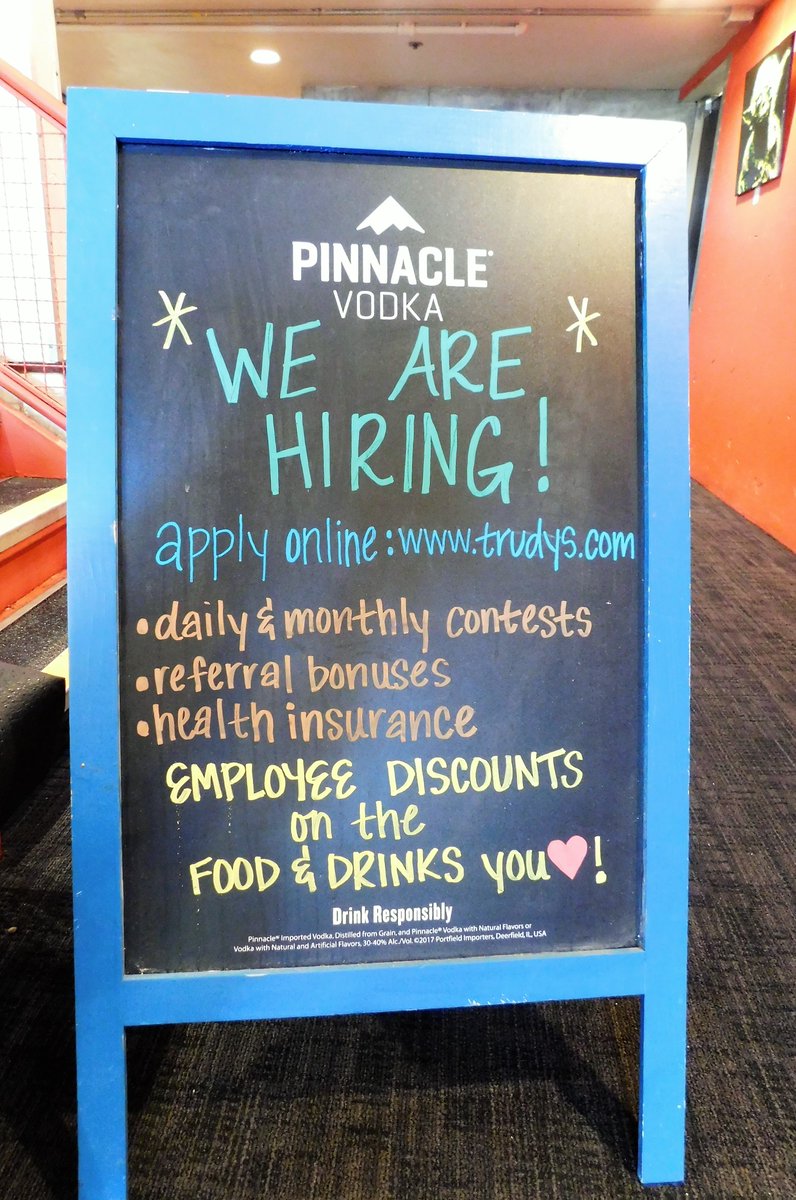 PINNACLE®
VODKA
* WE ARE *
HIRING!
apply online: www.trudys.com
• daily & monthly contests
• referral bonuses
• health insurance
EMPLOYEE DISCOUNTS
on the
FOOD & DRINKS you ♥!
Drink Responsibly
Pinnacle® Imported Vodka, Distilled from Grain, and Pinnacle® Vodka with Natural Flavors or
Vodka with Natural and Artificial Flavors, 30-40% Alc./Vol. ©2017 Portfield Importers, Deerfield, IL, USA